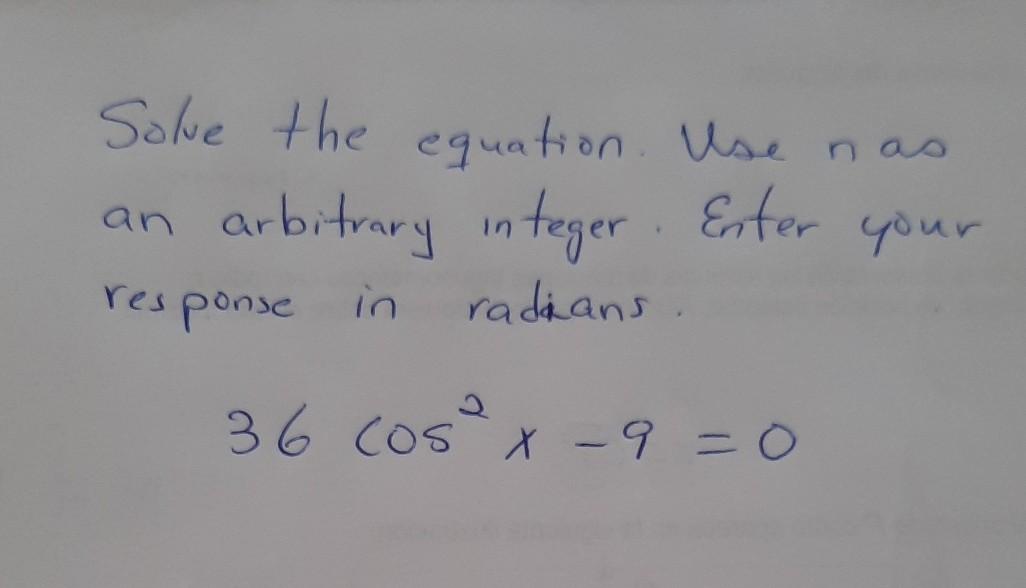 Solve the equation. Use n as
an arbitrary integer. Enter your
response in radians.
36 cos² x - 9 = 0